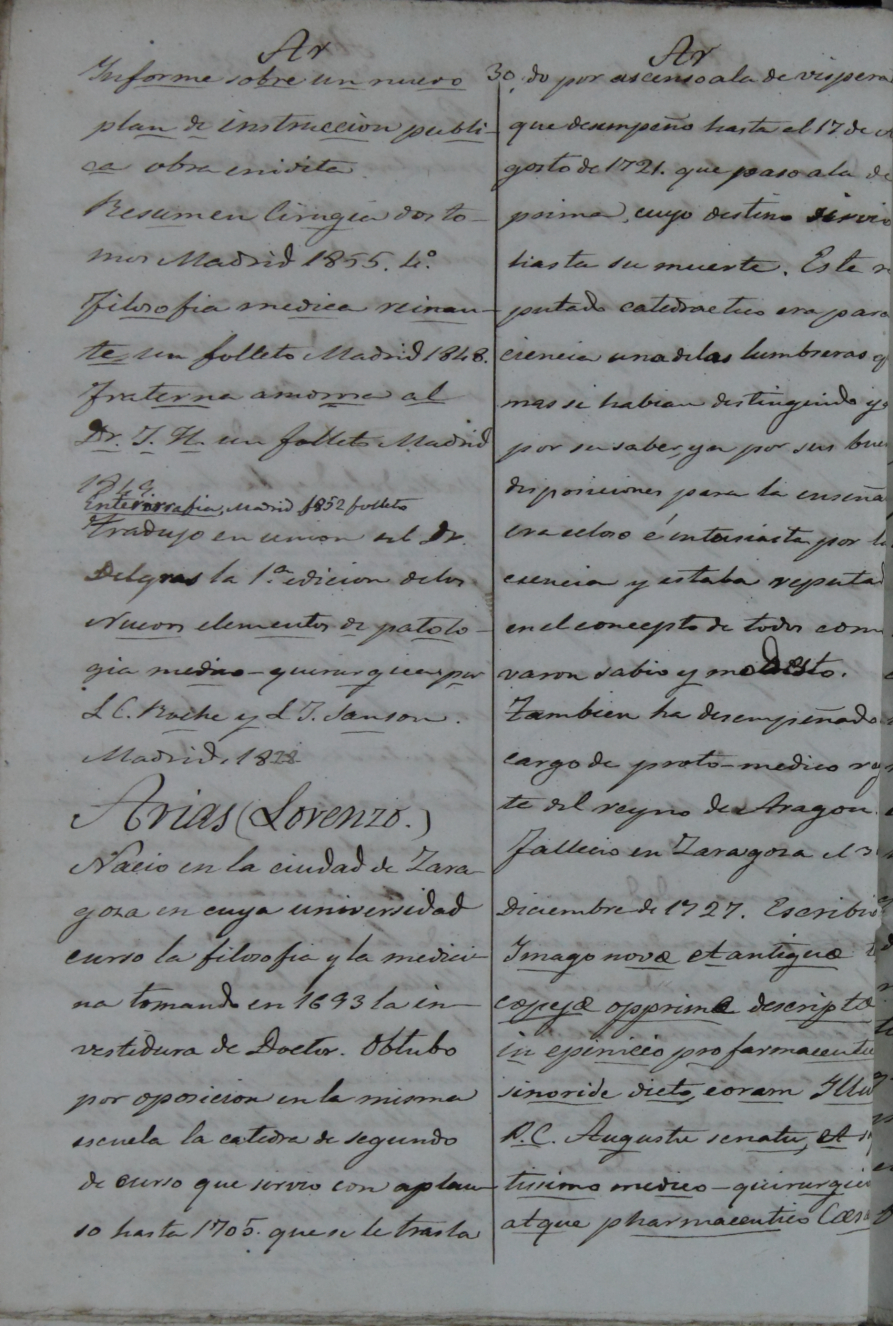 Ar
Informe sobre un nuevo
plan de instruccion publi-
ca obra inidita
Resumen Cirugia dos to-
mos Madrid 1855. 4º.
Filosofia medica reinan-
te, un folleto Madrid 1848.
Fraterna amorosa al
Dr. T. H. un folleto Madrid
1849
Enterorrafia, Madrid 1852 folleto
Tradujo en union del Dr.
Delgras la 1.ª edicion delos
Nuevos elementos de patolo-
gia medico-quirurgica, por
L C. Roche y L J. Sanson.
Madrid, 1828
Arias (Lorenzo.)
Nacio en la ciudad de Zara-
goza en cuya universidad
curso la filosofia y la medici-
na tomando en 1693 la in-
vestidura de Doctor. Obtubo
por oposicion en la misma
escuela la catedra de segundo
de curso que sirvio con aplau-
so hasta 1705. que se le trasla
30
Ar
do por ascenso ala de vispera
que desempeño hasta el 17 de a
gosto de 1721. que paso ala de
prima, cuyo destino sirvio
hasta su muerte. Este r
putado catedratico era para
ciencia una delas lumbreras q
mas se habian distinguido ya
por su saber, ya por sus bue
disposiciones para la enseña
era celoso é entusiasta por l
ciencia y estaba reputad
en el concepto de todos com
varon sabio y modesto.
Tambien ha desempeñado
cargo de proto-medico reg
te del reyno de Aragon.
Fallecio en Zaragoza el 3
Diciembre de 1727. Escribio
Imago novæ et antiquæ
copejæ opprime descriptæ
in epinicio pro farmaceutic
sinoride dicto, coram Illu
D. C. Augustu senatu, et s
tissimo medico-quirurgic
atque pharmaceutico Cæsa